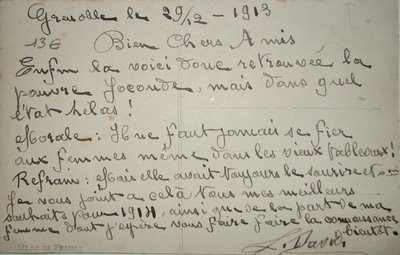 Grenoble le 29/12 - 1913
13€
Bien Chers Amis
Enfin la voici donc retrouvée la
pauvre Joconde, mais dans quel
état hélas!
Morale: Il ne faut jamais se fier
aux femmes même dans les vieux tableaux!
Refrain: Mais elle avait toujours le sourire et
Je vous joint a celà tous mes meilleurs
souhaits pour 1914, ainsi que de la part de ma
femme dont j'espère vous faire faire la connaissance
bientôt.
L. David
MADE IN FRANCE